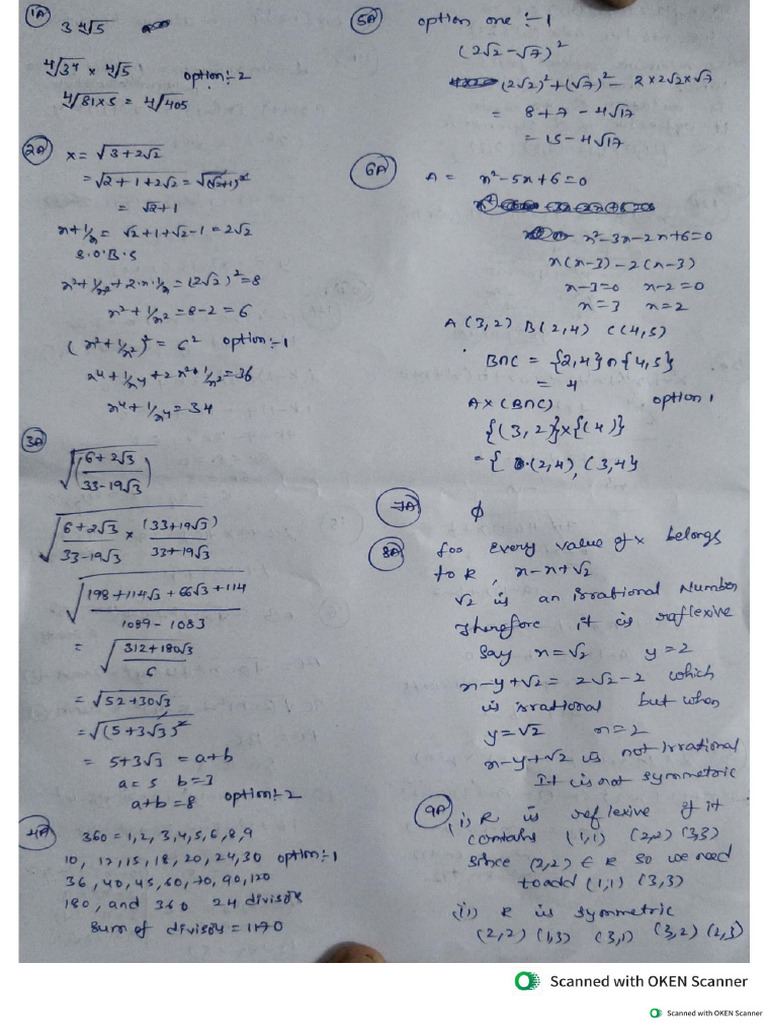 1A 3∜5
∜3⁴ × ∜5 option:- 2
∜81×5 = ∜405
2A x = √3+2√2
= √2+1+2√2 = √(√2+1)²
= √2+1
x+1/x = √2+1+√2-1 = 2√2
S.O.B.S
x²+1/x²+2.x.1/x = (2√2)² = 8
x²+1/x² = 8-2 = 6
(x²+1/x²)² = 6² option:-1
x⁴+1/x⁴+2x²·1/x² = 36
x⁴+1/x⁴ = 34
3A
√(6+2√3/33-19√3)
√6+2√3/33-19√3 × (33+19√3)/33+19√3
√198+114√3+66√3+114/1089-1083
= √312+180√3/6
= √52+30√3
= √(5+3√3)²
= 5+3√3 = a+b
a=5 b=3
a+b=8 option:-2
4A 360 = 1,2,3,4,5,6,8,9
10, 12, 15, 18, 20, 24, 30 option:-1
36, 40, 45, 60, 70, 90, 120
180, and 360 24 divisors
Sum of divisors = 1170
5A option one :- 1
(2√2-√7)²
(2√2)²+(√7)²- 2×2√2×√7
= 8+7-4√17
= 15-4√17
6A A = x²-5x+6=0
x²-3x-2x+6=0
x(x-3)-2(x-3)
x-3=0 x-2=0
x=3 x=2
A(3,2) B(2,4) C(4,5)
B∩C = {2,4}∩{4,5}
= 4
A×(B∩C) option 1
{(3,2}×{(4)}
= {(2,4), (3,4}
7A ϕ
8A foo every value of x belongs
to R, x-x+√2
√2 is an irrational Number
Therefore it is reflexive
Say x=√2 y=2
x-y+√2 = 2√2-2 which
is irrational but when
y=√2 x=2
x-y+√2 is not Irrational
It is not symmetric
9A
(i) R is reflexive if it
contains (1,1) (2,2) (3,3)
since (2,2) ∈ R so we need
to add (1,1) (3,3)
(ii) R is symmetric
(2,2) (1,3) (3,1) (3,2) (2,3)
Scanned with OKEN Scanner
Scanned with OKEN Scanner